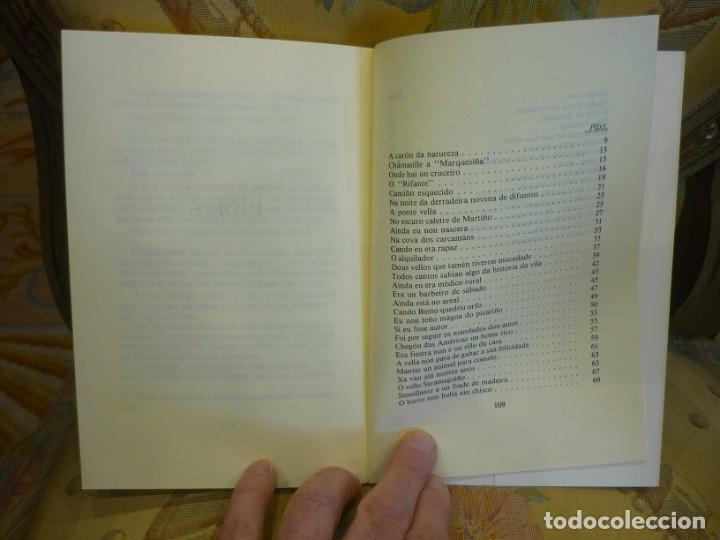 INDICE
Páxs.
A carón da natureza . . . . . . . . . . 9
Chámanlle a "Marquesiña" . . . . . . . . . . 13
Onde hai un cruceiro . . . . . . . . . . 15
O "Rifante" . . . . . . . . . . 16
Camiño esquecido . . . . . . . . . . 19
Na noite da derradeira novena de difuntos . . . . . . . . . . 21
A ponte vella . . . . . . . . . . 23
No escuro caletre de Martiño . . . . . . . . . . 25
Ainda eu non nascera . . . . . . . . . . 27
Na cova dos carcamáns . . . . . . . . . . 31
Cando eu era rapaz . . . . . . . . . . 33
O alquilador . . . . . . . . . . 35
Dous vellos que tamén tiveron mocedade . . . . . . . . . . 37
Todos cantos sabían algo da historia da vila . . . . . . . . . . 39
Ainda eu era médico rural . . . . . . . . . . 42
Era un barbeiro de sábado . . . . . . . . . . 43
Ainda está no areal . . . . . . . . . . 45
Cando Bieito quedóu orfo . . . . . . . . . . 47
Eu non teño mágoa do picariño . . . . . . . . . . 49
Si eu fose autor . . . . . . . . . . 50
Foi por seguir os mandados dun amor . . . . . . . . . . 53
Chegóu das Américas un home rico . . . . . . . . . . 55
Esa fiestra non é un ollo da casa . . . . . . . . . . 57
A vella non para de gabar a súa felicidade . . . . . . . . . . 59
Manter un animal para comelo . . . . . . . . . . 61
Xa van alá moitos anos . . . . . . . . . . 63
O vello Saramaguiño . . . . . . . . . . 65
Semellante a un frade de madeira . . . . . . . . . . 67
O burro non bulía sin chisco . . . . . . . . . . 69
109
todocoleccion.net